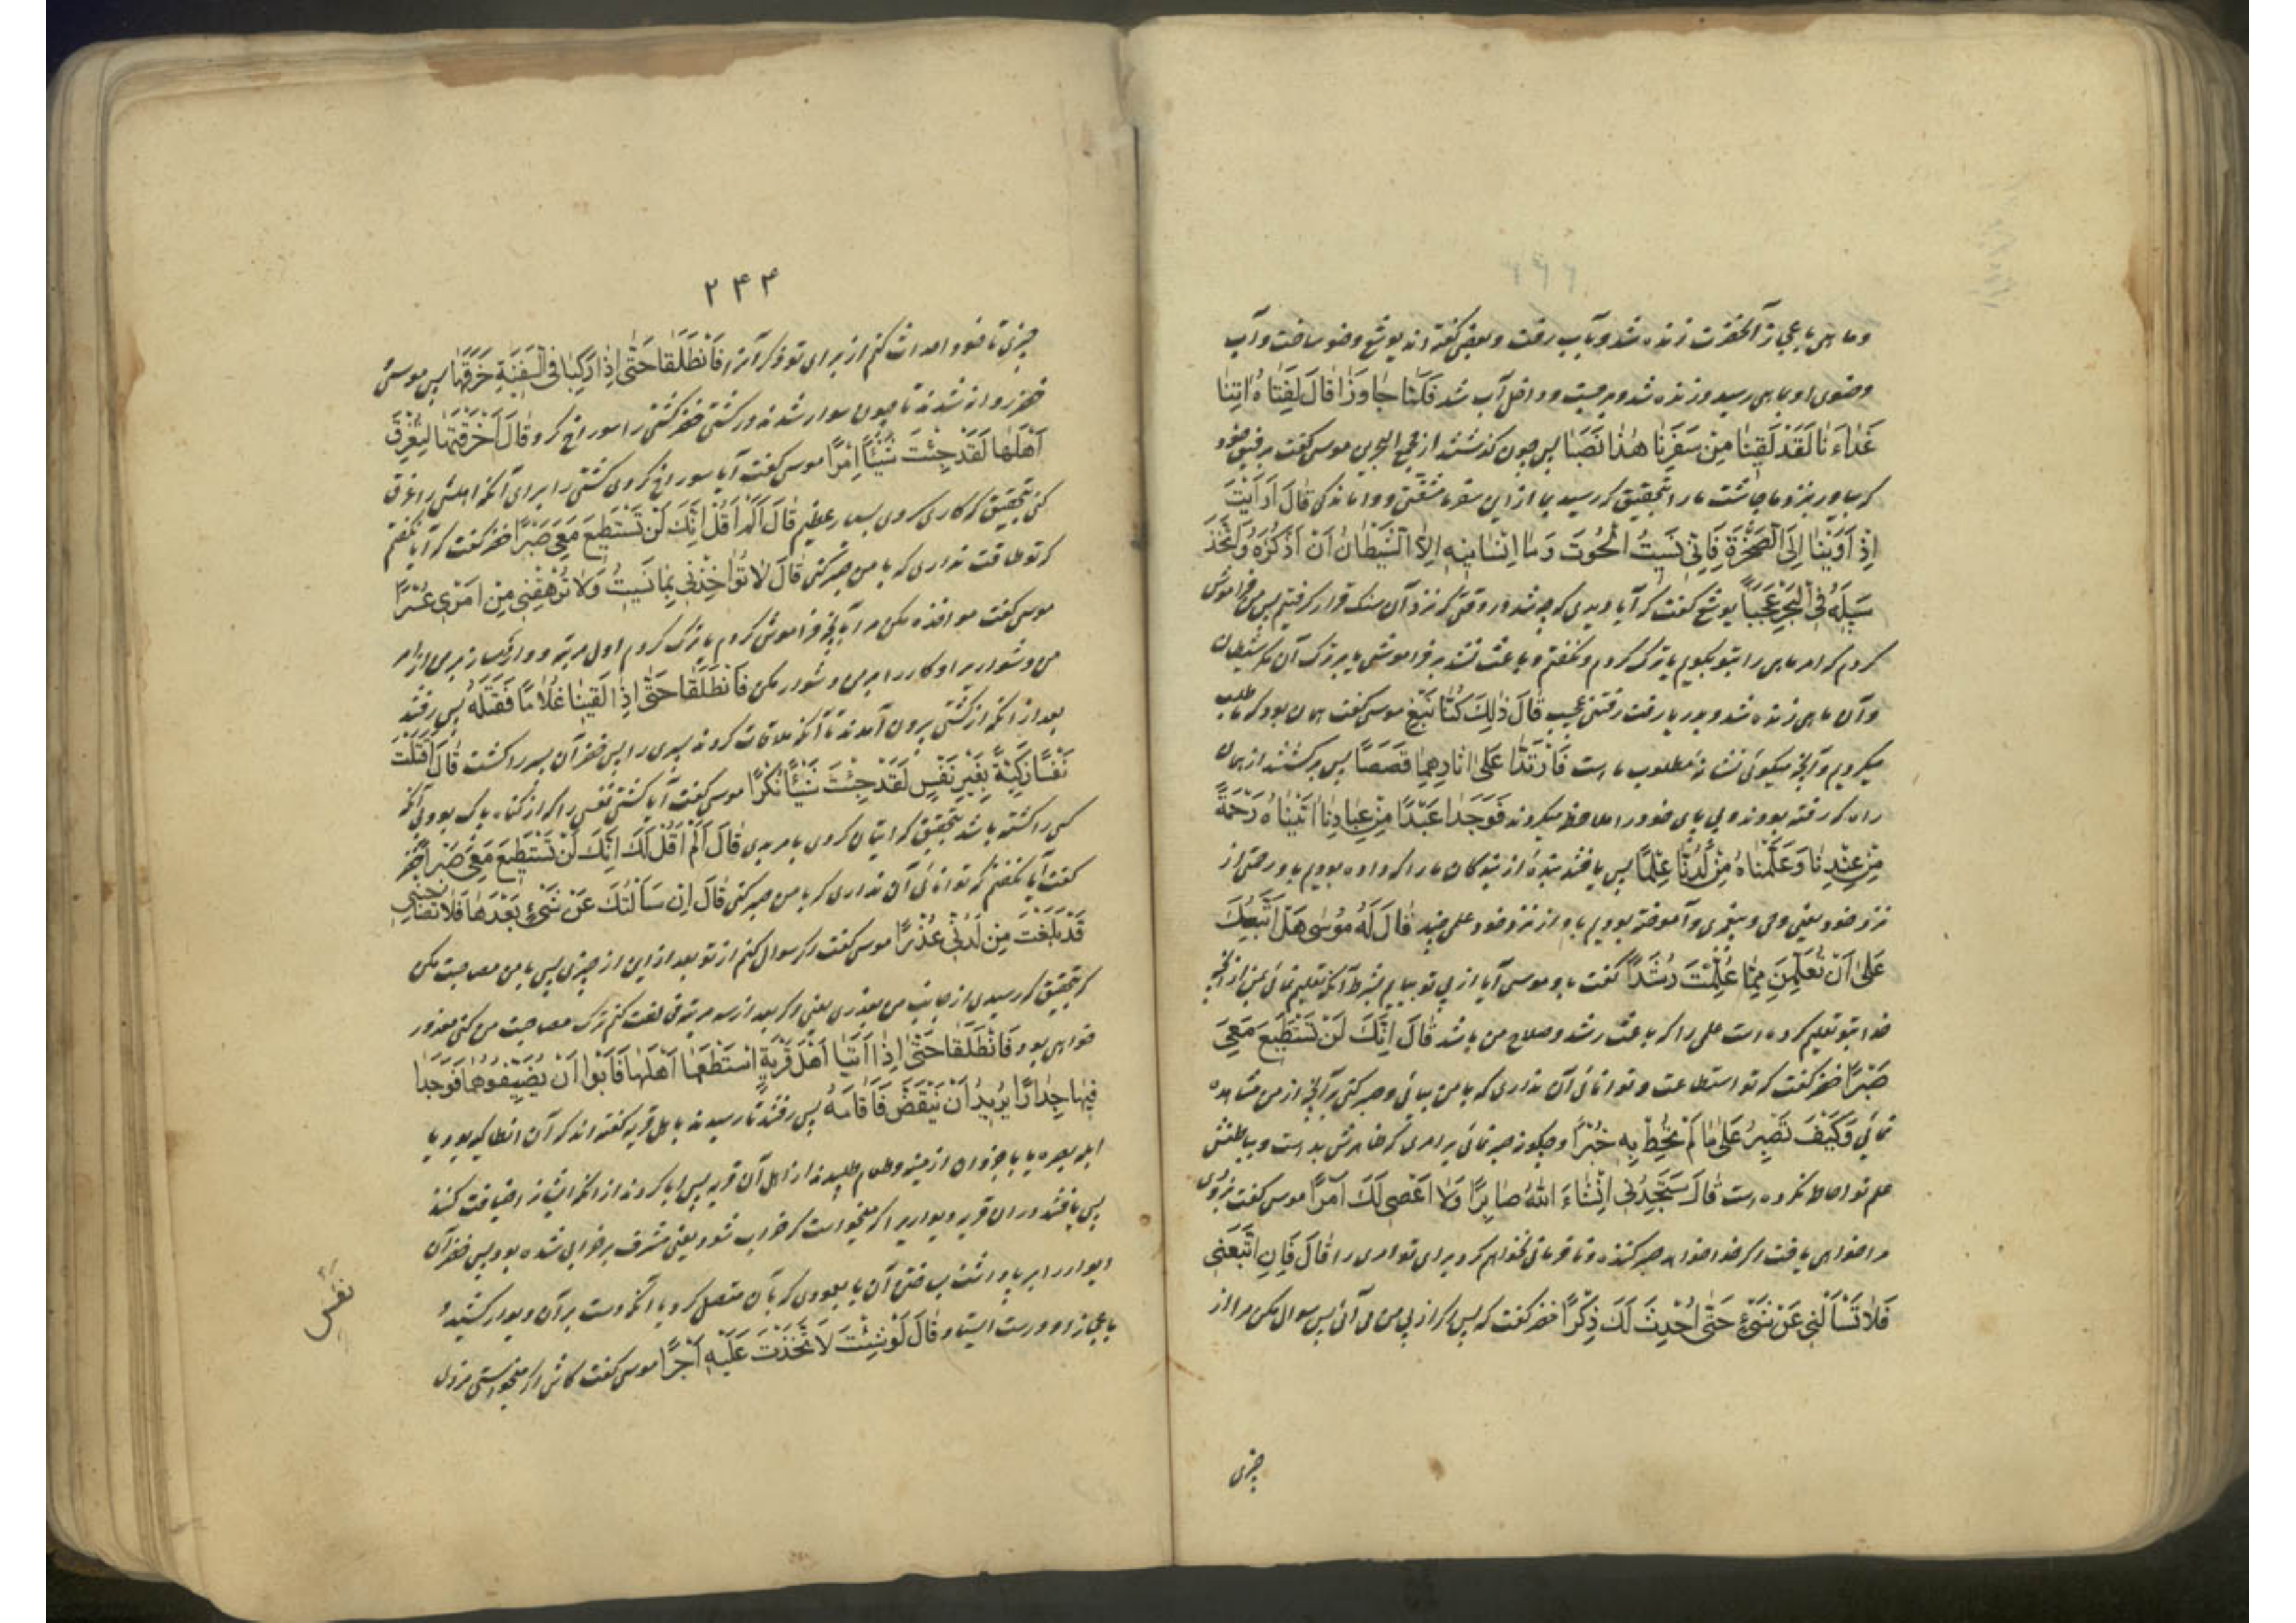 وماهی باعجاز آنحضرت زنده شد و بآب رفت و بعضی گفته اند یوشع وضو ساخت و آب
وضوی او بماهی رسید و زنده شد و برجست و داخل آب شد فَلَمَّا جَاوَزَا قَالَ لِفَتٰاهُ اٰتِنٰا
غَدٰاءَنٰا لَقَدْ لَقِینٰا مِنْ سَفَرِنٰا هٰذٰا نَصَبًا پس چون گذشتند از مجمع البحرین موسی گفت برفیق خود
که بیاور نزد ما چاشت ما را بتحقیق که رسید بما از این سفر ما مشقتی و واماندکی قٰالَ اَرَاَیْتَ
اِذْ اَوَیْنٰا اِلَی الصَّخْرَةِ فَاِنّی نَسیتُ الْحُوتَ وَمٰا اَنْسٰانیهِ اِلاَّ الشَّیْطٰانُ اَنْ اَذْکُرَهُ وَاتَّخَذَ
سَبیلَهُ فِی الْبَحْرِ عَجَبًا یوشع گفت که آیا دیدی که چه شد در وقتی که نزد آن سنک قرار گرفتیم پس من فراموش
کردم که امر ماهی را بتو بگویم یا ترک کردم و نگفتم و باعث نشد بر فراموشی یا بر ترک آن مگر شیطان
و آن ماهی زنده شد و بدریا رفت رفتنی عجیب قٰالَ ذٰلِکَ کُنّٰا نَبْغِ موسی گفت همان بود که ما طلب
میکردیم و آنچه میگوئی نشانهٔ مطلوب ماست فَارْتَدّٰا عَلٰی اٰثٰارِهِمٰا قَصَصًا پس برگشتند از همان
راه که رفته بودند و پی پای خود را ملاحظه میکردند فَوَجَدٰا عَبْدًا مِنْ عِبٰادِنٰا اٰتَیْنٰاهُ رَحْمَةً
مِنْ عِنْدِنٰا وَعَلَّمْنٰاهُ مِنْ لَدُنّٰا عِلْمًا پس یافتند بندهٔ از بندگان ما را که داده بودیم باو رحمتی از
نزد خود یعنی وحی و پیغمبری و آموخته بودیم باو از نزد خود علمی چند قٰالَ لَهُ مُوسٰی هَلْ اَتَّبِعُکَ
عَلٰی اَنْ تُعَلِّمَنِ مِمّٰا عُلِّمْتَ رُشْدًا گفت باو موسی آیا از پی تو بیایم بشرط آنکه تعلیم نمائی بمن از آنچه
خدا بتو تعلیم کرده است علمی را که باعث رشد و صلاح من باشد قٰالَ اِنَّکَ لَنْ تَسْتَطیعَ مَعِیَ
صَبْرًا خضر گفت که تو استطاعت و توانائی آن نداری که با من بیائی و صبر کنی بر آنچه از من مشاهده
نمائی وَکَیْفَ تَصْبِرُ عَلٰی مٰا لَمْ تُحِطْ بِهِ خُبْرًا و چگونه صبر نمائی بر امری که ظاهرش بد است و بباطنش
علم تو احاطه نکرده است قٰالَ سَتَجِدُنی اِنْ شٰاءَ اللّٰهُ صٰابِرًا وَلٰا اَعْصی لَکَ اَمْرًا موسی گفت بزودی
مرا خواهی یافت اگر خدا خواهد صبر کننده و نافرمانی نخواهم کرد برای تو امری را قٰالَ فَاِنِ اتَّبَعْتَنی
فَلٰا تَسْاَلْنی عَنْ شَیْءٍ حَتّٰی اُحْدِثَ لَکَ ذِکْرًا خضر گفت که پس اگر از پی من می آئی پس سوال مکن مرا از
چیزی
۲۴۳
چیزی تا خود احداث کنم از برای تو ذکر آنرا فَانْطَلَقٰا حَتّٰی اِذٰا رَکِبٰا فِی السَّفینَةِ خَرَقَهٰا پس موسی و
خضر روانه شدند تا چون سوار شدند در کشتی خضر کشتی را سوراخ کرد قٰالَ اَخَرَقْتَهٰا لِتُغْرِقَ
اَهْلَهٰا لَقَدْ جِئْتَ شَیْئًا اِمْرًا موسی گفت آیا سوراخ کردی کشتی را برای آنکه اهلش را غرق
کنی بتحقیق که کاری کردی بسیار عظیم قٰالَ اَلَمْ اَقُلْ اِنَّکَ لَنْ تَسْتَطیعَ مَعِیَ صَبْرًا خضر گفت که آیا نگفتم
که تو طاقت نداری که با من صبر کنی قٰالَ لٰا تُؤٰاخِذْنی بِمٰا نَسیتُ وَلٰا تُرْهِقْنی مِنْ اَمْری عُسْرًا
موسی گفت مواخذه مکن مرا بآنچه فراموش کردم یا ترک کردم اول مرتبه و وارد مساز بر من از امر
من دشواریرا و کار را بر من دشوار مکن فَانْطَلَقٰا حَتّٰی اِذٰا لَقِیٰا غُلٰامًا فَقَتَلَهُ پس رفتند
بعد از آنکه از کشتی بیرون آمدند تا آنکه ملاقات کردند پسری را پس خضر آن پسر را کشت قٰالَ اَقَتَلْتَ
نَفْسًا زَکِیَّةً بِغَیْرِ نَفْسٍ لَقَدْ جِئْتَ شَیْئًا نُکْرًا موسی گفت آیا کشتی نفسی را که از گناه پاک بود بی آنکه
کسی را کشته باشد بتحقیق که اتیان کردی بامر بدی قٰالَ اَلَمْ اَقُلْ لَکَ اِنَّکَ لَنْ تَسْتَطیعَ مَعِیَ صَبْرًا خضر
گفت آیا نگفتم که توانائی آن نداری که با من صبر کنی قٰالَ اِنْ سَاَلْتُکَ عَنْ شَیْءٍ بَعْدَهٰا فَلٰا تُصٰاحِبْنی
قَدْ بَلَغْتَ مِنْ لَدُنّی عُذْرًا موسی گفت اگر سوال کنم از تو بعد از این از چیزی پس با من مصاحبت مکن
که بتحقیق که رسیدی از جانب من بعذری یعنی اگر بعد از سه مرتبه مخالفت کنم ترک مصاحبت من کنی معذور
خواهی بود فَانْطَلَقٰا حَتّٰی اِذٰا اَتَیٰا اَهْلَ قَرْیَةٍ اسْتَطْعَمٰا اَهْلَهٰا فَاَبَوْا اَنْ یُضَیِّفُوهُمٰا فَوَجَدٰا
فیهٰا جِدٰارًا یُریدُ اَنْ یَنْقَضَّ فَاَقٰامَهُ پس رفتند تا رسیدند باهل قریه گفته اند که آن انطاکیه بود یا
ابله بصره یا باجروان ارمینیه و طعام طلبیدند از اهل آن قریه پس ابا کردند از آنکه ایشانرا ضیافت کنند
پس یافتند در آن قریه دیواریرا که میخواست که خراب شود یعنی مشرف بر خرابی شده بود پس خضر آن
دیوار را برپا داشت بساختن آن یا بعمودی که بآن متصل کرد یا آنکه دست بر آن دیوار کشید و
باعجاز او درست ایستاد قٰالَ لَوْ شِئْتَ لَاتَّخَذْتَ عَلَیْهِ اَجْرًا موسی گفت کاش اگر میخواستی مزدی